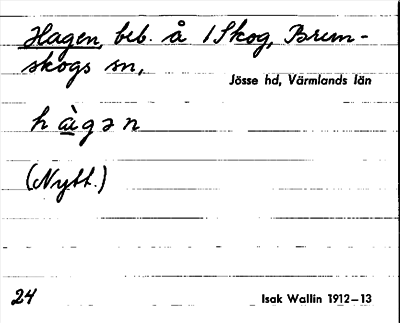 Hagen, beb. å 1 Skog, Brun-
skogs sn,
Jösse hd, Värmlands län
hàgən
(Nytt.)
24
Isak Wallin 1912–13